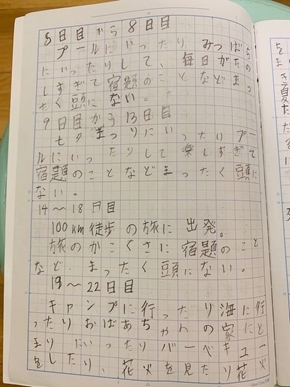 5日目から8日目
プールにいったり みつばちの
たいったりして、毎日がた
しすぎて宿題のことなどまっ
たく頭にない。
9日目から13日目
七夕まつりにいったりプー
ルにいったりして楽しすぎて
宿題のことなどまったく頭に
ない。
14〜18日目
100km徒歩の旅に出発。
旅のかこくさに宿題のこと
など、まったく頭にない。
19〜22日目
キャンプに行ったり海に行
ったりおばあちゃんの家にと
まりにいったりバーベキュー
をしたり、花火を見たり花火